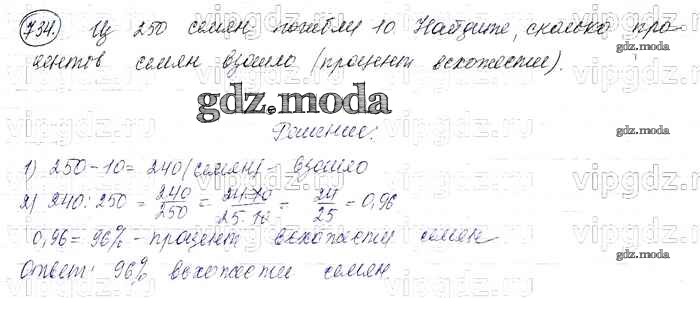 734. Из 250 семян погибли 10. Найдите, сколько про-
центов семян взошло (процент всхожести).
gdz.moda
Решение:
1) 250-10= 240 (семян) - взошло
2) 240:250 = 240/250 = 24.10/25.10 = 24/25 = 0,96
0,96 = 96% - процент всхожести семян
Ответ: 96% всхожести семян.